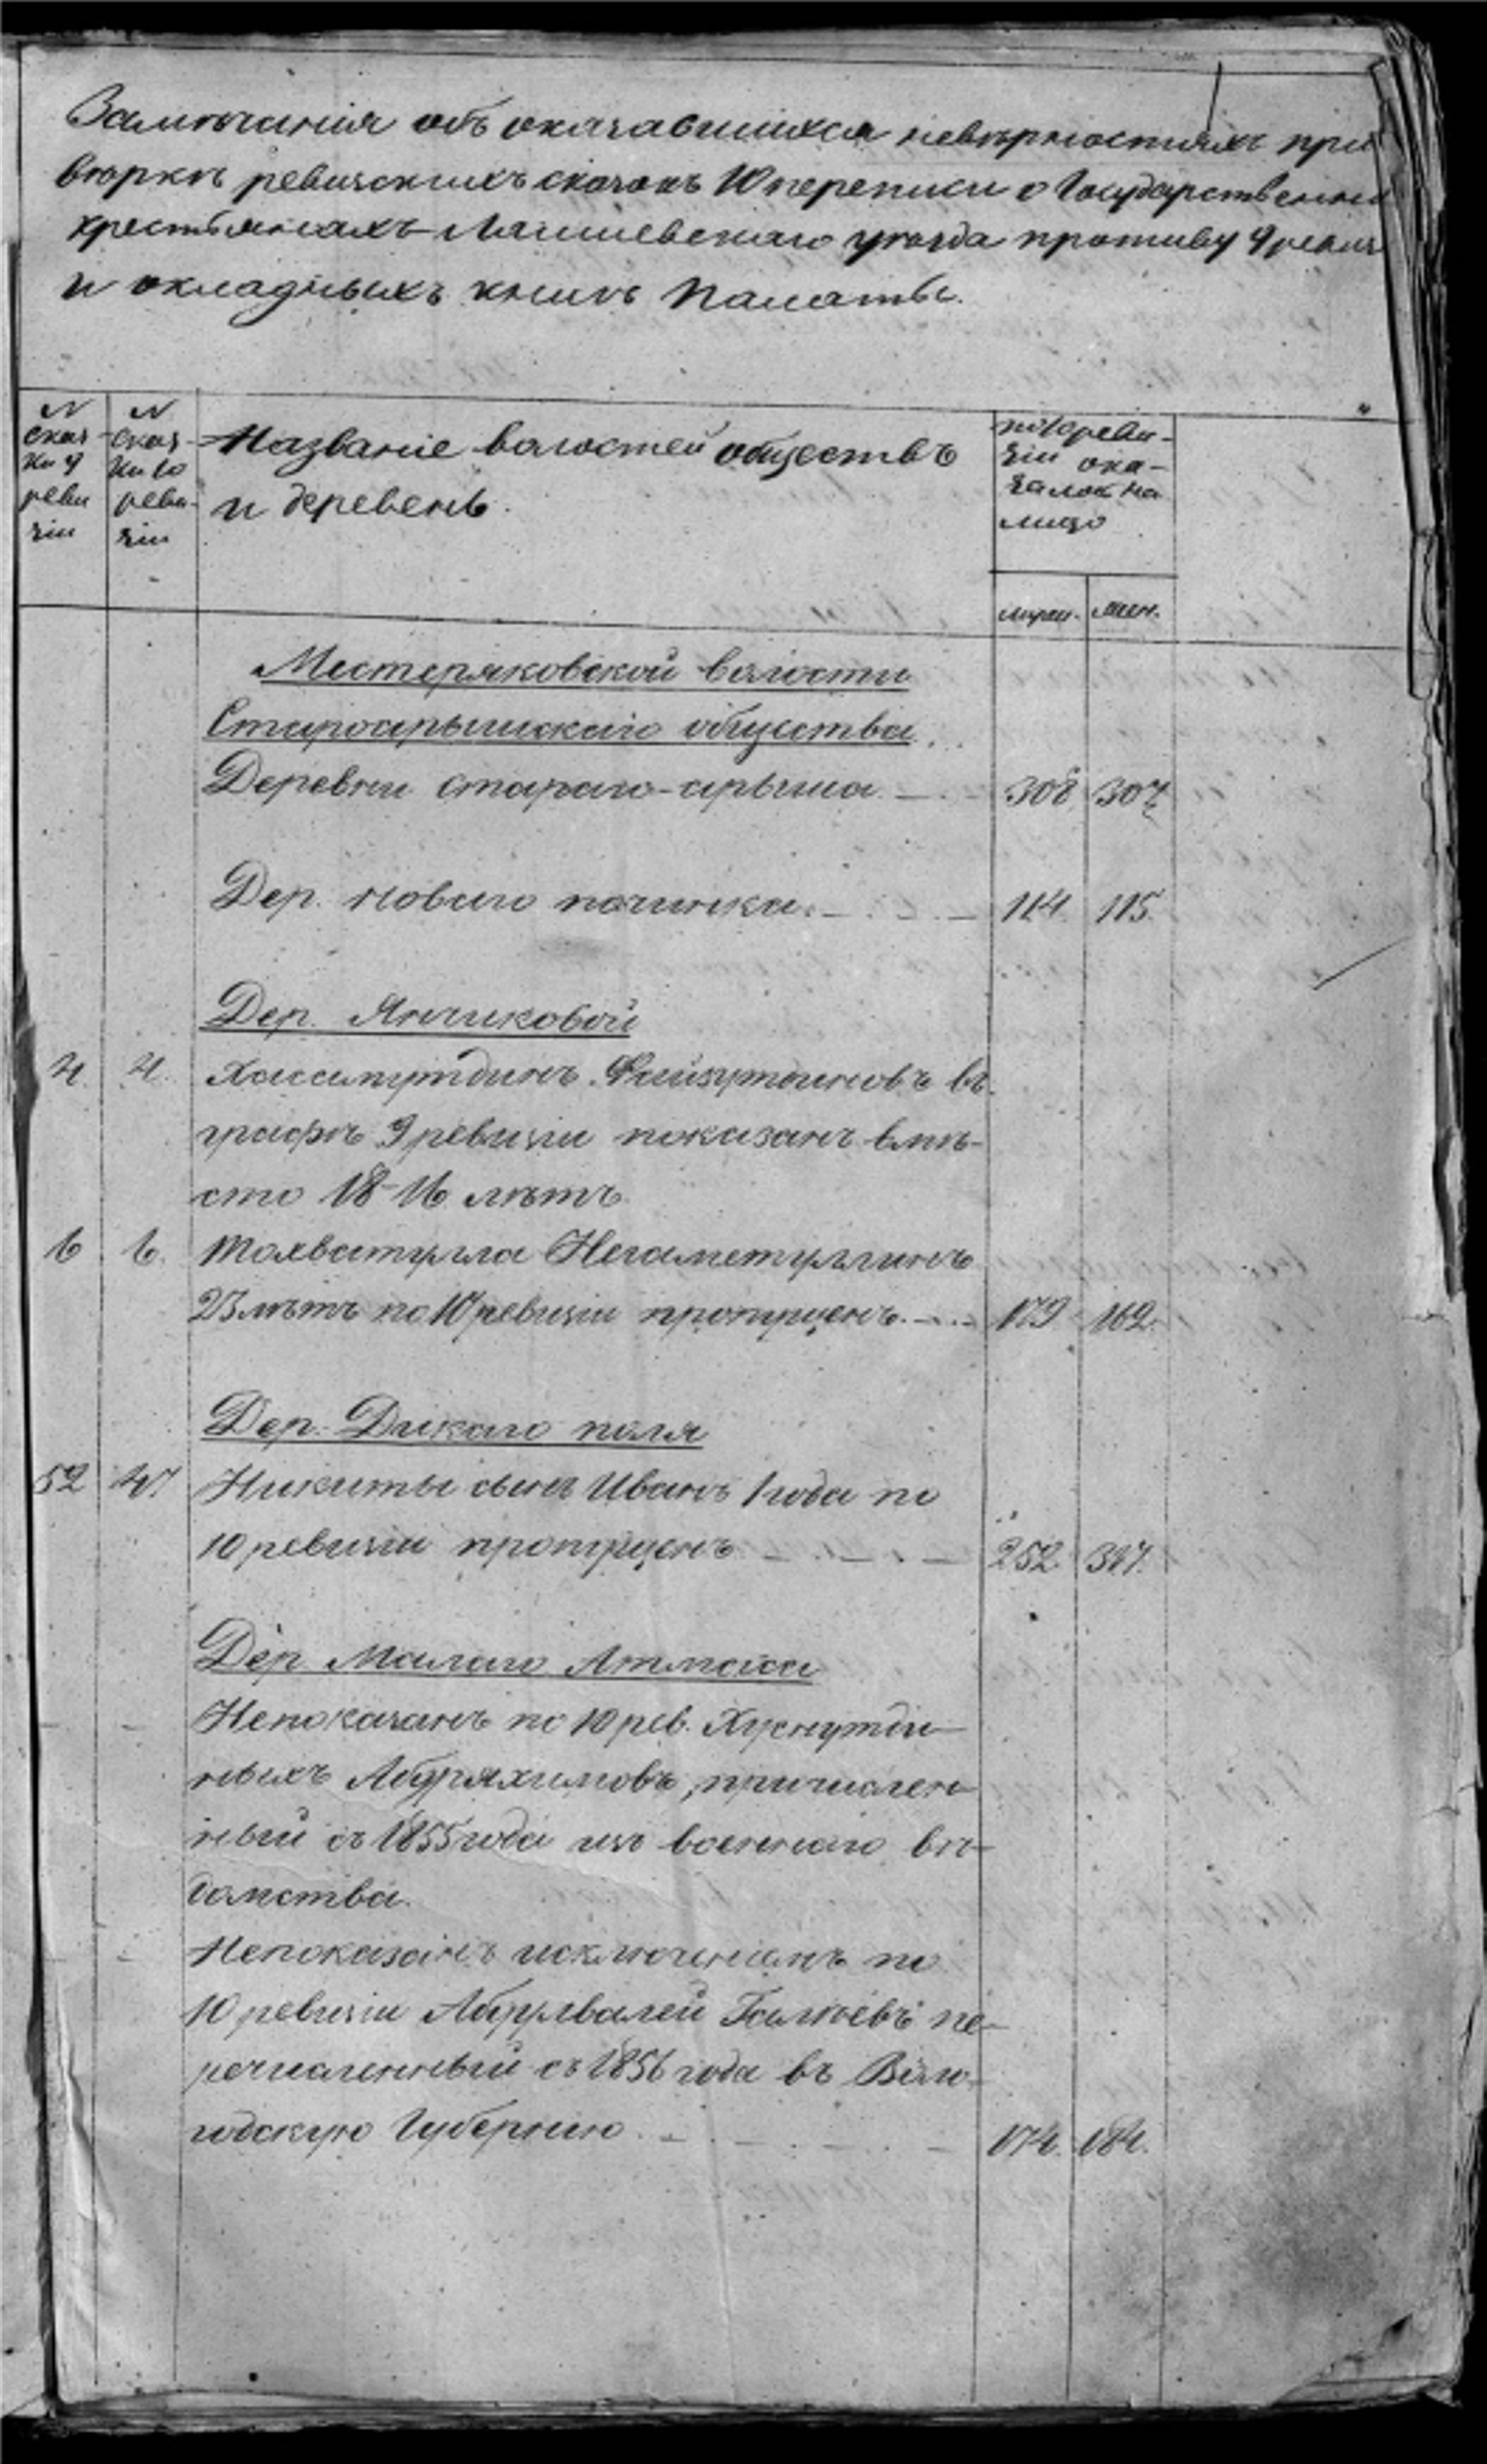 Замѣчанія объ оказавшихся невѣрностяхъ при
вѣркѣ ревизскихъ сказокъ 10 переписи о Государственны
крестьянахъ Лаишевскаго уѣзда противу 9 ревиз
и окладныхъ книгъ Палаты.
№ сказ-ки 9 реви зіи
№ сказ-ки 10 реви-зіи
Названіе волостей обществъ
и деревень.
по 10 реви-
зіи ока-
залось на
лицо
муж. жен.
Местеряковской волости
Староарышскаго общества
Деревни Стараго-арыша 308 307
Дер. Новаго починка 114 115
Дер. Янчиковой
4 4 Хисаметдинъ Фейзутдиновъ въ
графѣ 9 ревизіи показанъ вмѣ-
сто 18-16 лѣтъ
6 6 Тохватулла Негаметуллинъ
23 лѣтъ по 10 ревизіи пропущенъ 179 162
Дер. Дикаго поля
52 47 Никиты сынъ Иванъ 1 года по
10 ревизіи пропущенъ 252 307
Дер. Малаго Атмаса
Непоказанъ по 10 рев. Хуснутди
новыхъ Абдряхимовъ, причислен
ный съ 1855 года изъ военнаго вѣ-
домства.
Непоказанъ исключеніемъ по
10 ревизіи Абдулвалей Галѣевъ пе-
речисленный съ 1856 года въ Воло-
годскую Губернію 174 184